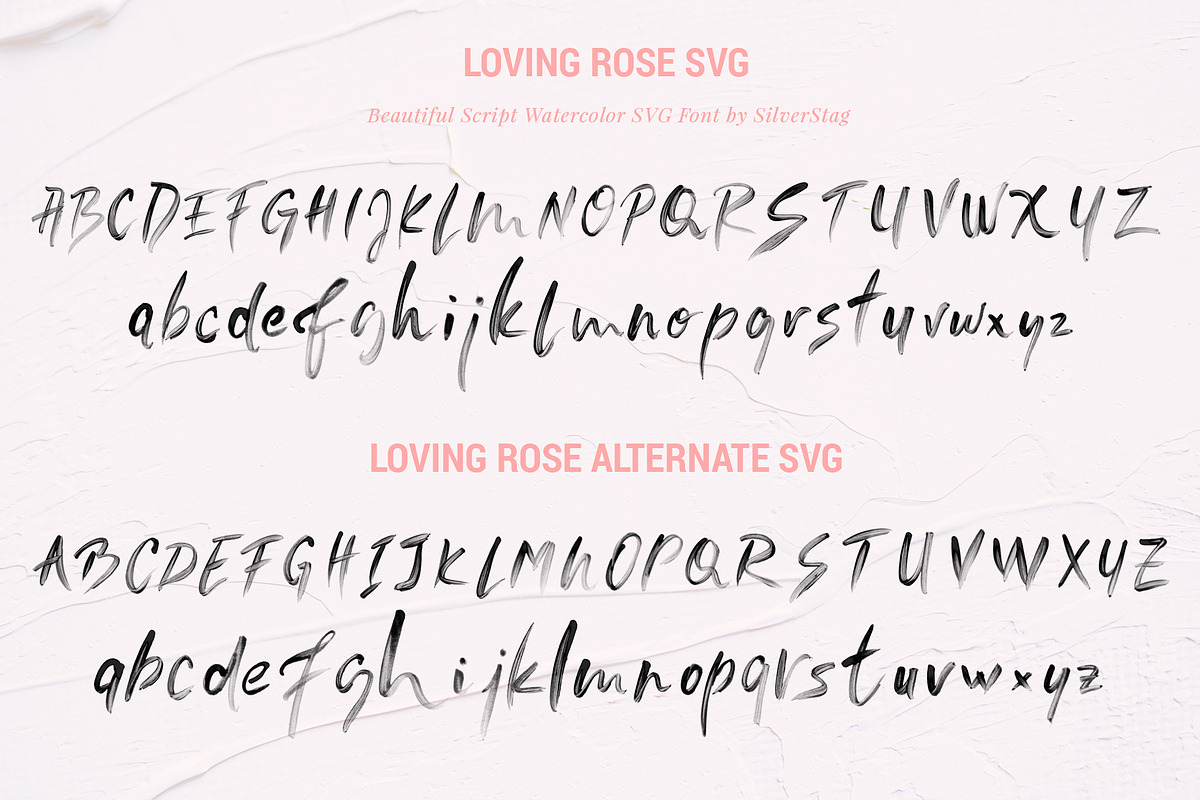 LOVING ROSE SVG
Beautiful Script Watercolor SVG Font by SilverStag
ABCDEFGHIJKLmNOPQRSTUVWXYZ
abcdefghijklmnopqrstuvwxyz
LOVING ROSE ALTERNATE SVG
ABCDEFGHIJKLMnOPQRSTUVWXYZ
abcdefghijklmnopqrstuvwxyz